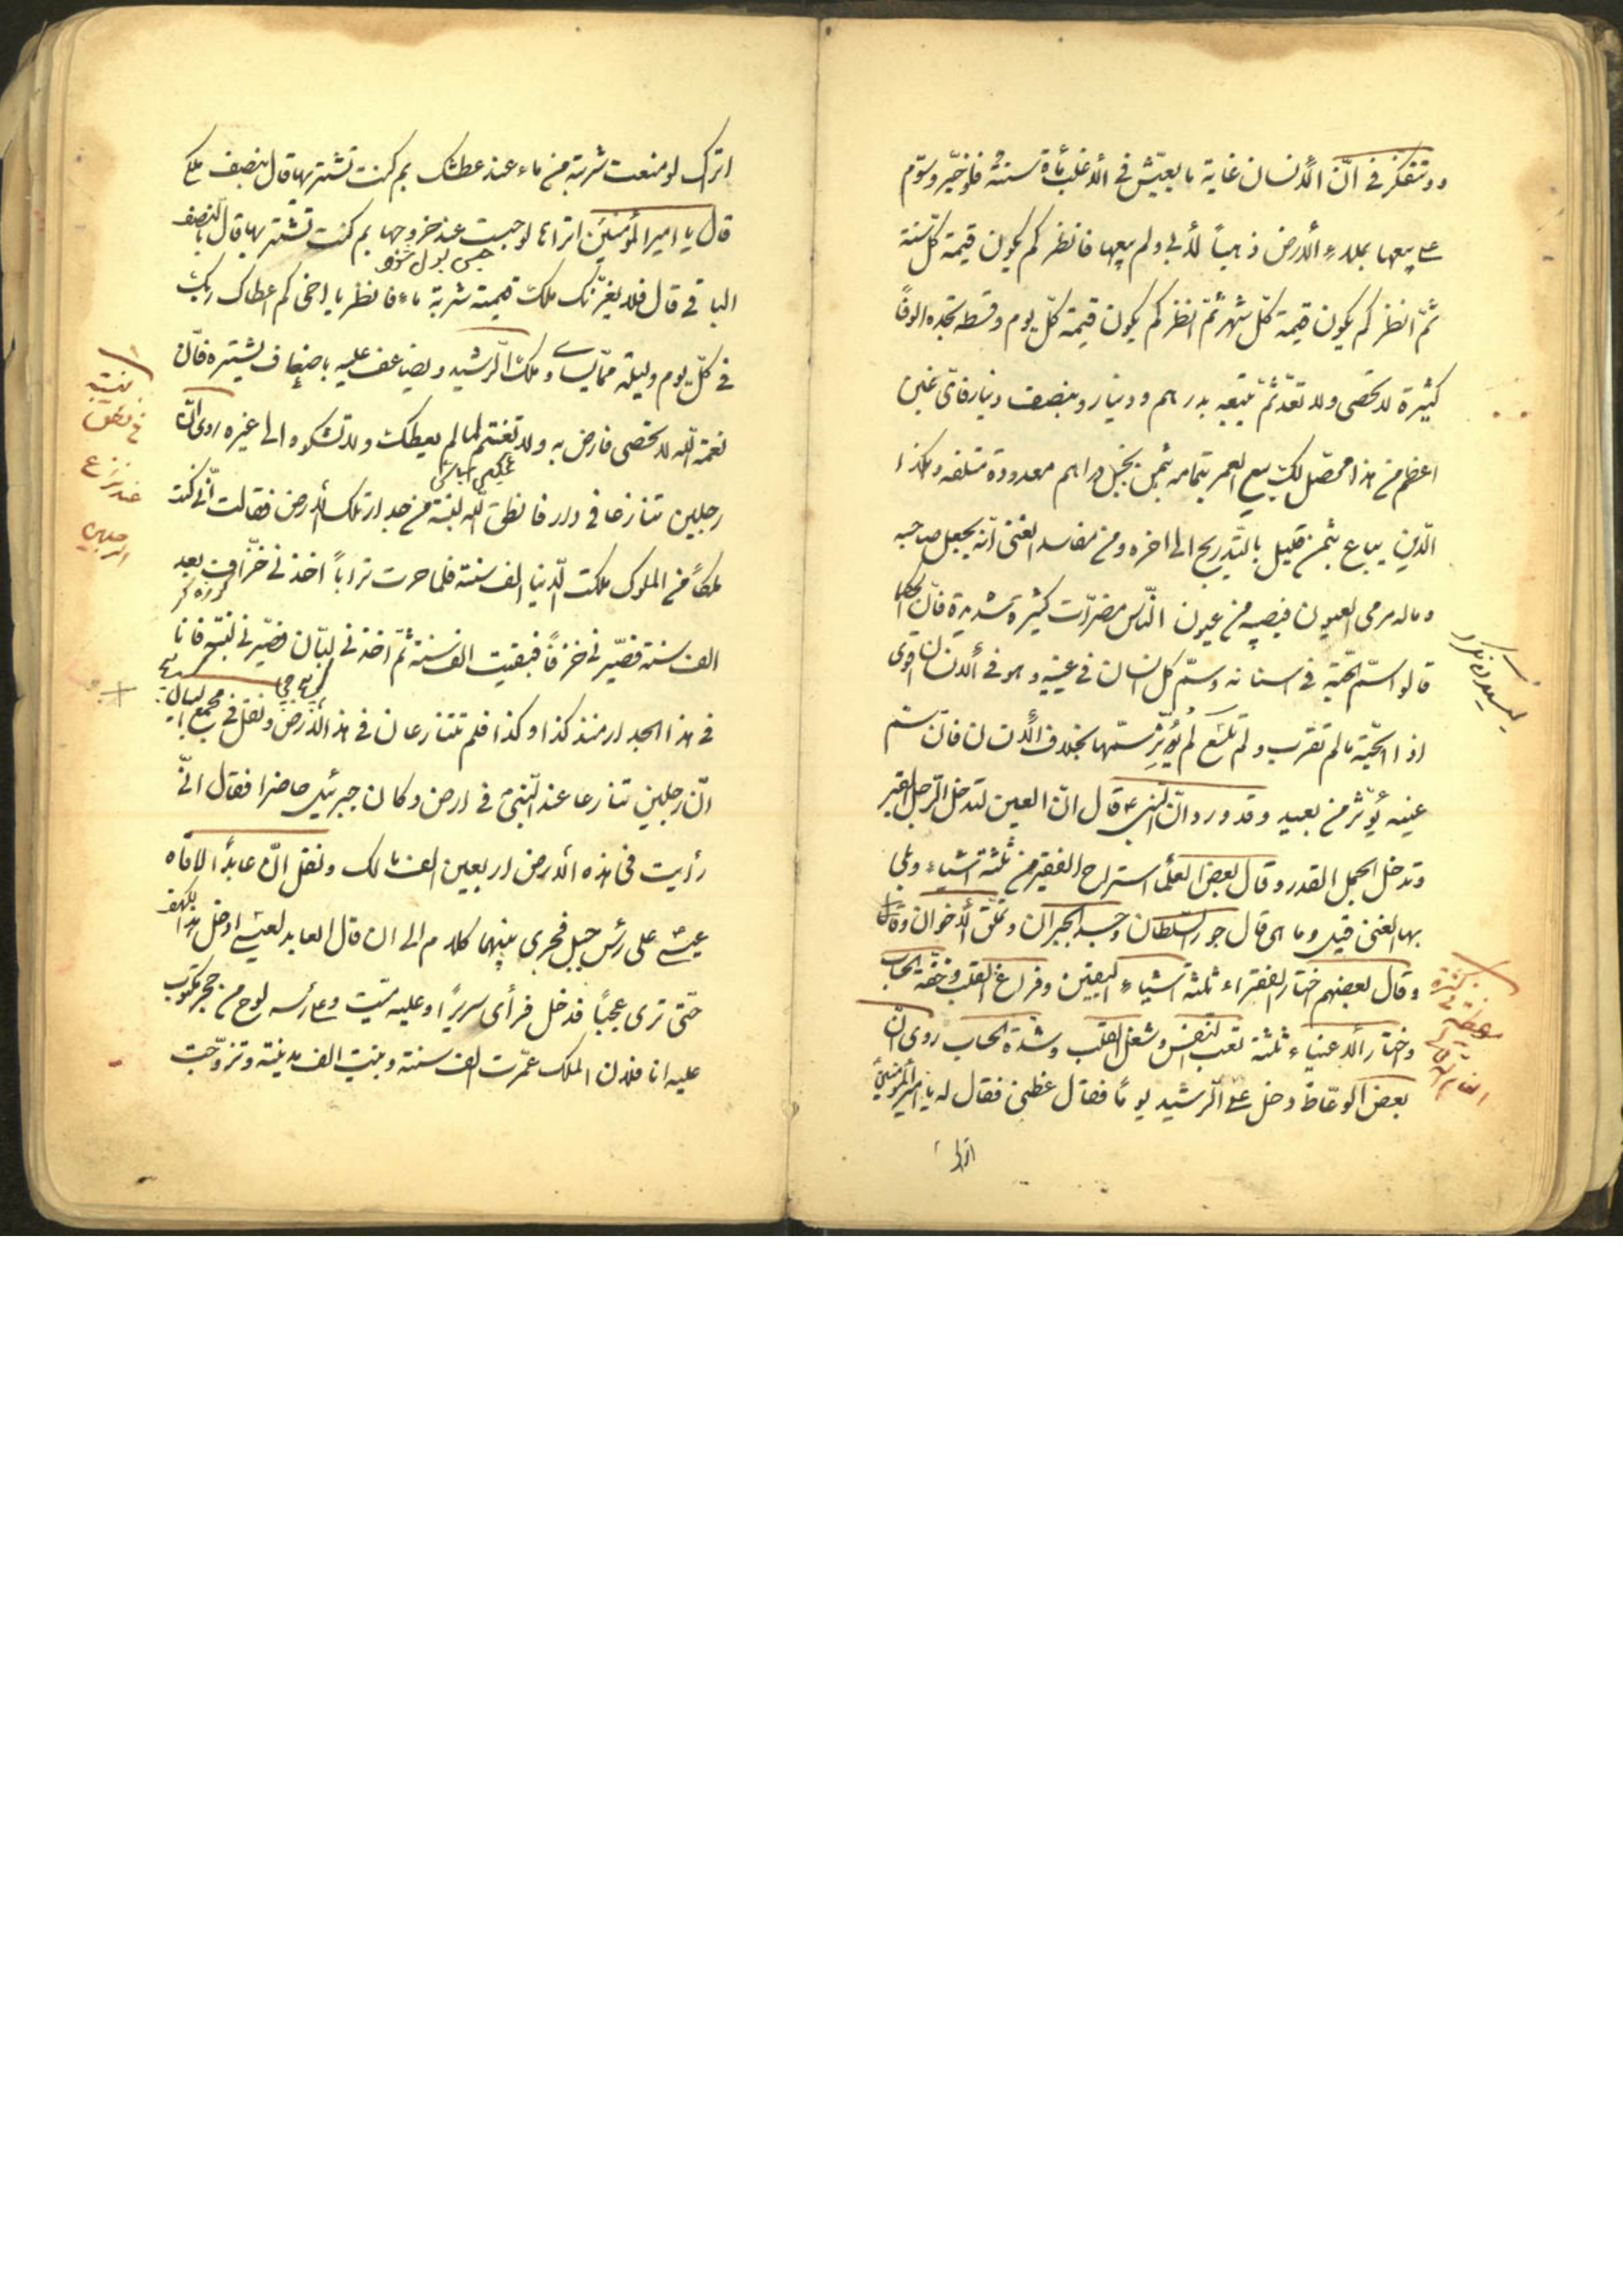 وتتفكّر في انّ الأنسان غاية ما يعيّش في الأغلب مأة سنة فلو خيّر وسوّم
على بيعها بملاء الأرض ذهباً لأبى ولم يبعها فانظر كم يكون قيمة كلّ سنة
ثمّ انظر كم يكون قيمة كلّ شهر ثمّ انظر كم يكون قيمة كلّ يوم وقسطه تجده الوفاً
كثيرة لا تحصى ولا تعدّ ثمّ تبيعه بدرهم ودينار وبنصف دينار فايّ غبن
اعظم من هذا محصّل لك بيع العمر بتمامه بثمن بخس دراهم معدودة متلفه وهكذا
الّذي يباع بثمن قليل بالتّدريج الى اخره ومن مفاسد الغنى انّه يجعل صاحبه
وماله مرمى العيون فيصيبه من عيون النّاس مضرّات كثيرة شديدة فانّ الحكماء
قالوا سمّ الحيّة في اسنانه وسمّ كل انسان في عينيه وهو في الأنسان اقوى
اذا الحيّة ما لم تقرب ولم تلسع لم يؤثّر سمّها بخلاف الأنسان فان سم
عينه يؤثر من بعيد وقد ورد انّ النبي ص قال انّ العين لتدخل الرّجل القبر
وتدخل الجمل القدر وقال بعض العلماء استراح الفقير من ثلثة اشياء وبلي
بها الغنى قيل وما هي قال جور السّلطان وحسد الجيران وتملّق الأخوان
وقال بعضهم اختار الفقراء ثلثة اشياء اليقين وفراغ القلب وخفّة الحساب
واختار الأغنياء ثلثة تعب النّفس وشغل القلب وشدّة الحساب روى انّ
بعض الوعّاظ دخل على الرّشيد يوماً فقال عظني فقال له يا امير المؤمنين
اتراك
اتراك لو منعت شربة من ماء عند عطشك بم كنت تشتريها قال بنصف ملكي
قال يا امير المؤمنين اتراها لو حبست عند خروجها بم كنت تشتريها قال بالنّصف
حبس بول شود
الباقي قال فلا يغرّنك ملك قيمته شربة ماء فانظر يا اخى كم اعطاك ربّك
في كلّ يوم وليلة ممّا يساوي ملك الرّشيد ويضاعف عليه باضعاف كثيرة فانّ
نعمة اللّه لا تحصى فارض به ولا تغتم لما لم يعطك ولا تشكوه الى غيره روى انّ
غمگين مباش
رجلين تنازعا في دار فانطق اللّه لبنة من جدار تلك الأرض فقالت انّى كنت
ملكاً من الملوك ملكت الدّنيا الف سنة فلما صرت تراباً اخذنى خزّاف بعد
كوزه گر
الف سنة فصيّرنى خزفاً فبقيت الف سنة ثمّ اخذنى لبّان فصيّرنى لبنة فانا
في هذا الجدار منذ كذا وكذا فلم تتنازعان في هذه الأرض ونقل في مجمع البيان
انّ رجلين تنازعا عند النّبى في ارض وكان جبرئيل حاضرا فقال انّى
رأيت في هذه الأرض اربعين الف مالك ونقل انّ عابداً لاقاه
عيسى على رأس جبل فجرى بينهما كلام الى ان قال العابد لعيسى ادخل هذا الكهف
حتّى ترى عجباً فدخل فرأى سريراً وعليه ميّت وعلى رأسه لوح من حجر مكتوب
عليه انا فلان الملك عمّرت الف سنة وبنيت الف مدينة وتزوّجت